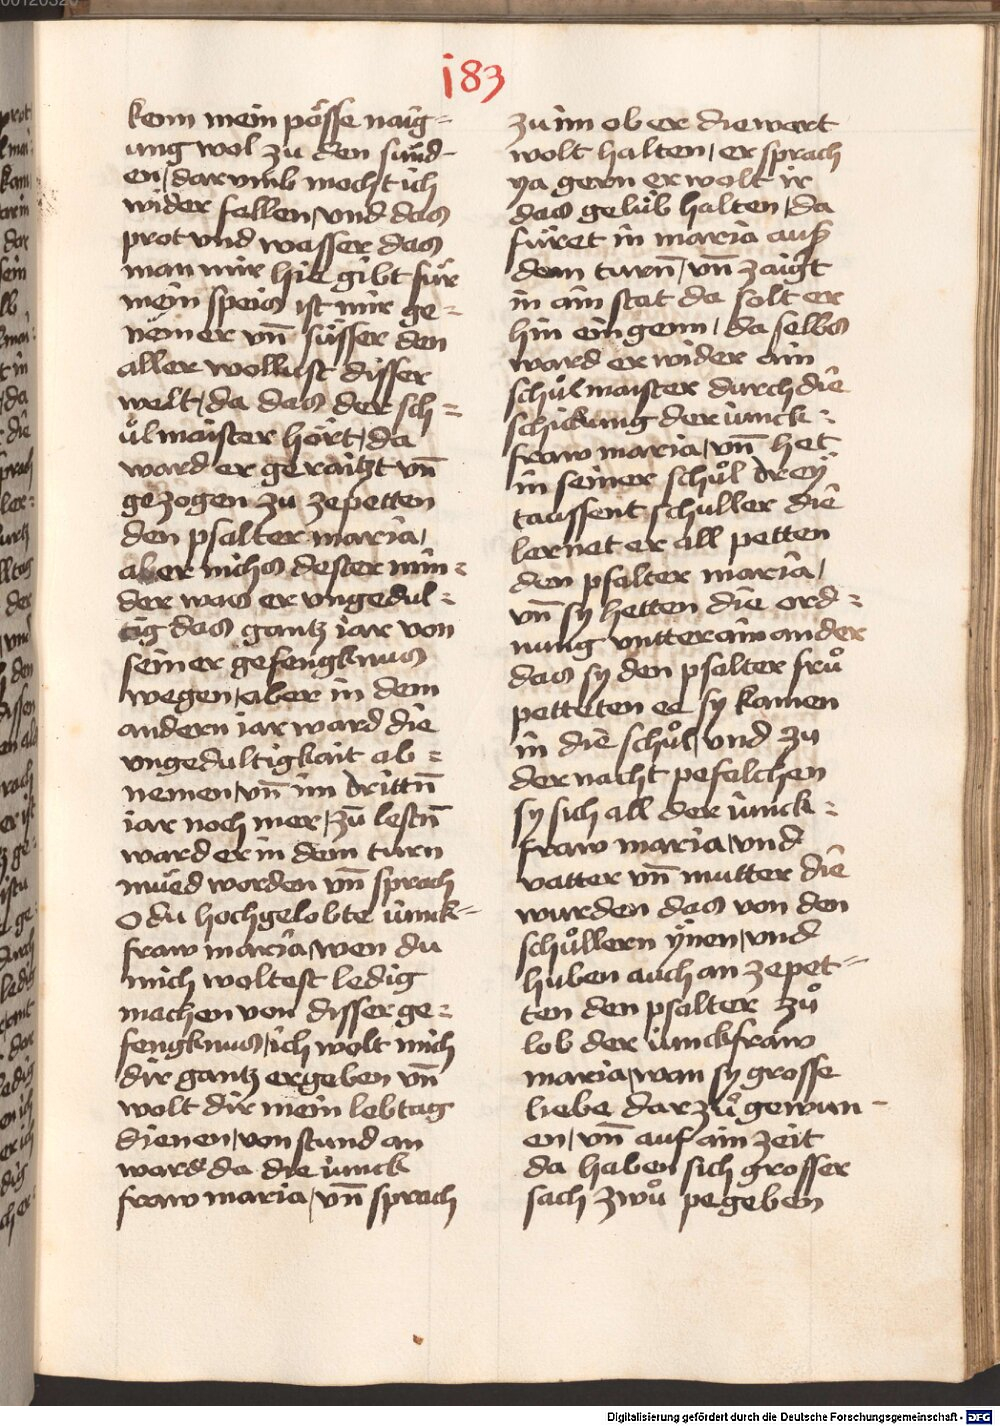 j83
kenn mein pösse naig-
ung wol zu den sünd-
en / dar vmb mocht ich
wider fallen / vnd das
prot vnd wasser das
man mir hie gibt für
mein speis ist mir ge=
nemer vn̄ süsser den
aller wollust disser
welt / da das der sch=
ůlmaister hört / da
ward er geraitzt vn̄
gezogen zu zepetten
den psalter maria /
aber nichs dester min=
der was er vngedul=
tig das gantz iar von
seiner gefengknus
wegen / aber in dem
andern iar ward die
vngedultigkait ab=
nemen / vn̄ im drittn̄
iar noch mer / zu lestn̄
ward er in dem turn
mued worden vn̄ sprach
O du hochgelobte iunck=
fraw maria / wen du
mich woltest ledig
machen von disser ge=
fengknus / ich wolt mich
dir gantz ergeben vn̄
wolt dir mein lebtag
dienen / von stund an
ward da die iunck
fraw maria / vn̄ sprach
zu im ob er die wort
wolt halten / er sprach
ya gern er wolt ir
das gelüb halten / da
füret in maria auß
dem turn̄ / vn̄ zaigt
in ain stat da solt er
hin ein genn / da selbs
ward er wider ain
schůlmaister durch die
schickung der iunck=
fraw maria / vn̄ het
in seiner schůl dreÿ
taussent schuller die
lernet er all petten
den psalter maria /
vn̄ sy hetten die ord=
nung vntter ain ander
das sy den psalter frů
petteten ee sy kamen
in die schůl / vnd zu
der nacht pefalchen
sy sich all der iunck=
fraw maria / vnd
vatter vn̄ mutter die
wurden das von den
schůllern ÿnen / vnd
huben auch an zepet=
ten den psalter zů
lob der iunckfraw
maria / wan sy grosse
liebe dar zů gewun-
en / vn̄ auf ain zeit
da haben sich grosser
sach zwů pegeben
Digitalisierung gefördert durch die Deutsche Forschungsgemeinschaft - DFG